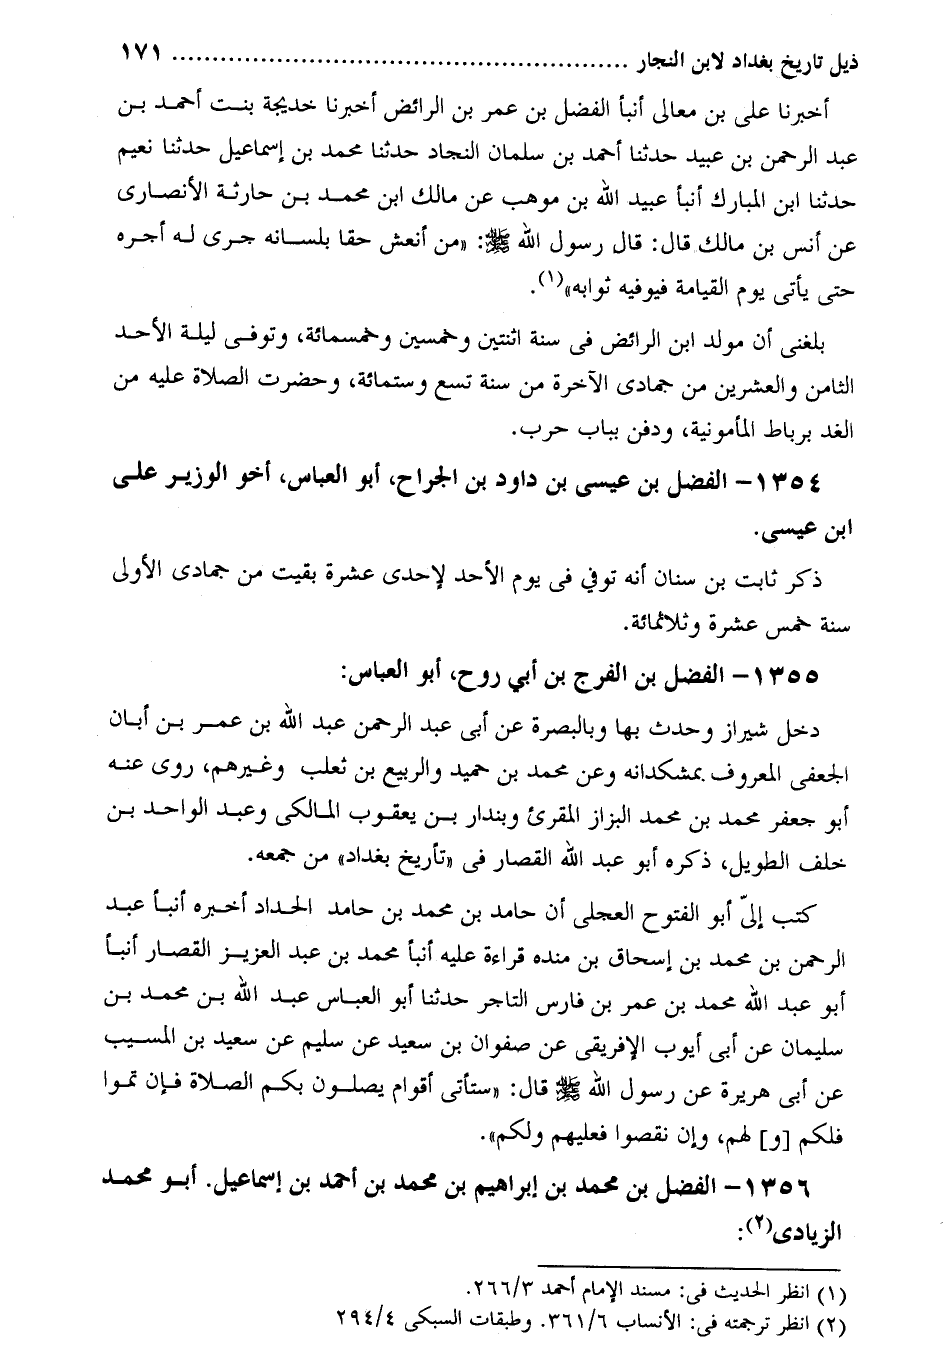 ذيل تاريخ بغداد لابن النجار ........................................................ ١٧١
أخبرنا على بن معالى أنبأ الفضل بن عمر بن الرائض أخبرنا خديجة بنت أحمد بن
عبد الرحمن بن عبيد حدثنا أحمد بن سلمان النجاد حدثنا محمد بن إسماعيل حدثنا نعيم
حدثنا ابن المبارك أنبأ عبيد الله بن موهب عن مالك ابن محمد بن حارثة الأنصارى
عن أنس بن مالك قال: قال رسول الله ﷺ: «من أنعش حقا بلسانه جرى له أجره
حتى يأتى يوم القيامة فيوفيه ثوابه»(١).
بلغنى أن مولد ابن الرائض فى سنة اثنتين وخمسين وخمسمائة، وتوفى ليلة الأحد
الثامن والعشرين من جمادى الآخرة من سنة تسع وستمائة، وحضرت الصلاة عليه من
الغد برباط المأمونية، ودفن بباب حرب.
١٣٥٤- الفضل بن عيسى بن داود بن الجراح، أبو العباس، أخو الوزير على
ابن عيسى.
ذكر ثابت بن سنان أنه توفي فى يوم الأحد لإحدى عشرة بقيت من جمادى الأولى
سنة خمس عشرة وثلاثمائة.
١٣٥٥- الفضل بن الفرج بن أبي روح، أبو العباس:
دخل شيراز وحدث بها وبالبصرة عن أبى عبد الرحمن عبد الله بن عمر بن أبان
الجعفى المعروف بمشكدانه وعن محمد بن حميد والربيع بن ثعلب وغيرهم، روى عنه
أبو جعفر محمد بن محمد البزاز المقرئ وبندار بن يعقوب المالكى وعبد الواحد بن
خلف الطويل، ذكره أبو عبد الله القصار فى «تأريخ بغداد» من جمعه.
كتب إلىّ أبو الفتوح العجلى أن حامد بن محمد بن حامد الحداد أخبره أنبأ عبد
الرحمن بن محمد بن إسحاق بن منده قراءة عليه أنبأ محمد بن عبد العزيز القصار أنبأ
أبو عبد الله محمد بن عمر بن فارس التاجر حدثنا أبو العباس عبد الله بن محمد بن
سليمان عن أبى أيوب الإفريقى عن صفوان بن سعيد عن سليم عن سعيد بن المسيب
عن أبى هريرة عن رسول الله ﷺ قال: «ستأتى أقوام يصلون بكم الصلاة فإن تموا
فلكم [و] لهم، وإن نقصوا فعليهم ولكم».
١٣٥٦- الفضل بن محمد بن إبراهيم بن محمد بن أحمد بن إسماعيل. أبو محمد
الزيادى(٢):
(١) انظر الحديث فى: مسند الإمام أحمد ٢٦٦/٣.
(٢) انظر ترجمته فى: الأنساب ٣٦١/٦. وطبقات السبكى ٢٩٤/٤